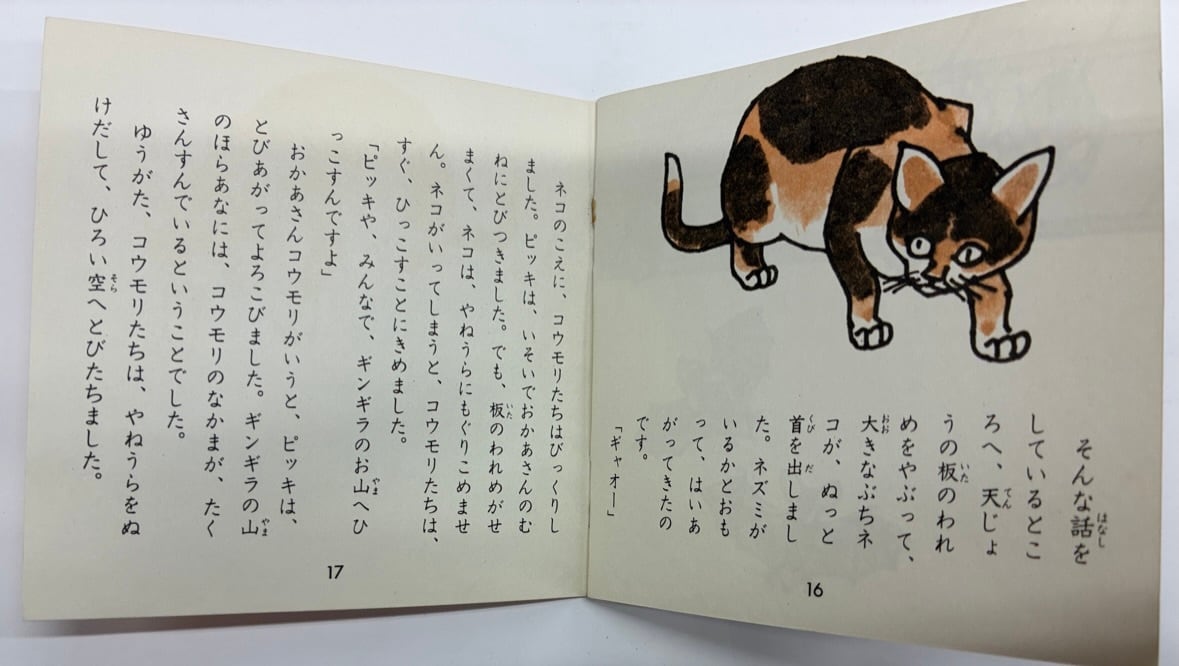 そんな話を
はなし
しているとこ
ろへ、天じょ
てん
うの板のわれ
いた
めをやぶって、
大きなぶちネ
おお
コが、ぬっと
首を出しまし
くび だ
た。ネズミが
いるかとおも
って、はいあ
がってきたの
です。
「ギャオー」
16
ネコのこえに、コウモリたちはびっくりし
ました。ピッキは、いそいでおかあさんのむ
ねにとびつきました。でも、板のわれめがせ
いた
まくて、ネコは、やねうらにもぐりこめませ
ん。ネコがいってしまうと、コウモリたちは、
すぐ、ひっこすことにきめました。
「ピッキや、みんなで、ギンギラのお山へひ
やま
っこすんですよ」
おかあさんコウモリがいうと、ピッキは、
とびあがってよろこびました。ギンギラの山
やま
のほらあなには、コウモリのなかまが、たく
さんすんでいるということでした。
ゆうがた、コウモリたちは、やねうらをぬ
けだして、ひろい空へとびたちました。
そら
17